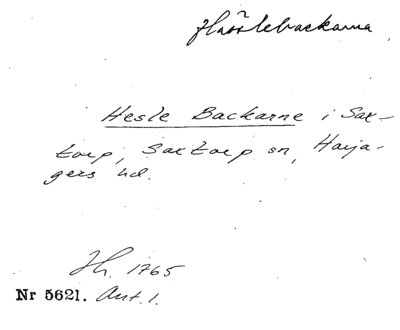 Hasslebackarna
Hesle Backarne i Sax-
torp, Saxtorp sn, Harja-
gers hd.
Jh. 1765
Nr 5621. Ant. 1.